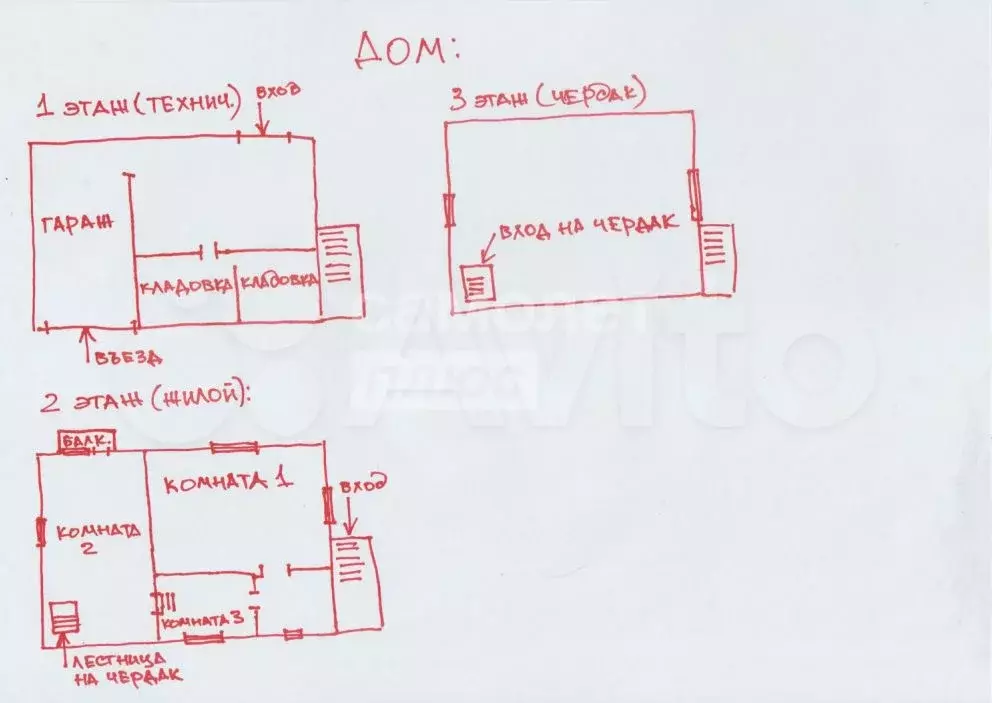 ДОМ:
1 ЭТАЖ (ТЕХНИЧ.)
ВХОД
ГАРАЖ
КЛАДОВКА
КЛАДОВКА
ВЪЕЗД
3 ЭТАЖ (ЧЕРДАК)
ВХОД НА ЧЕРДАК
самолет
плюс
Avito
2 ЭТАЖ (ЖИЛОЙ):
БАЛК.
КОМНАТА 1
ВХОД
КОМНАТА
2
КОМНАТА 3
ЛЕСТНИЦА
НА ЧЕРДАК